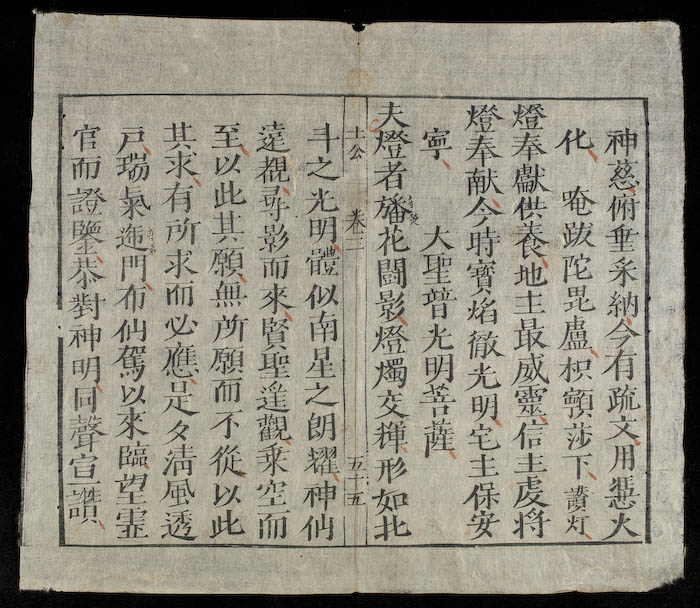 神慈俯垂采納今有疏文用憑火
化 唵跋陀毘盧枳顫莎下 讃灯
燈奉獻供養地主最威靈信主虔將
燈奉献今時寳焰徹光明宅主保安
寜 大聖普光明菩薩
夫燈者旛花閗影燈燭交輝形如北
土公 卷三 五十五
斗之光明體似南星之朗耀神仙
遠覩尋影而來賢聖遥觀乗空而
至以此其願無所願而不從以此
其求有所求而必應是夕清風透
戸瑞氣迤門布仙駕以來臨望霊
官而證鑒恭對神明同聲宣讚